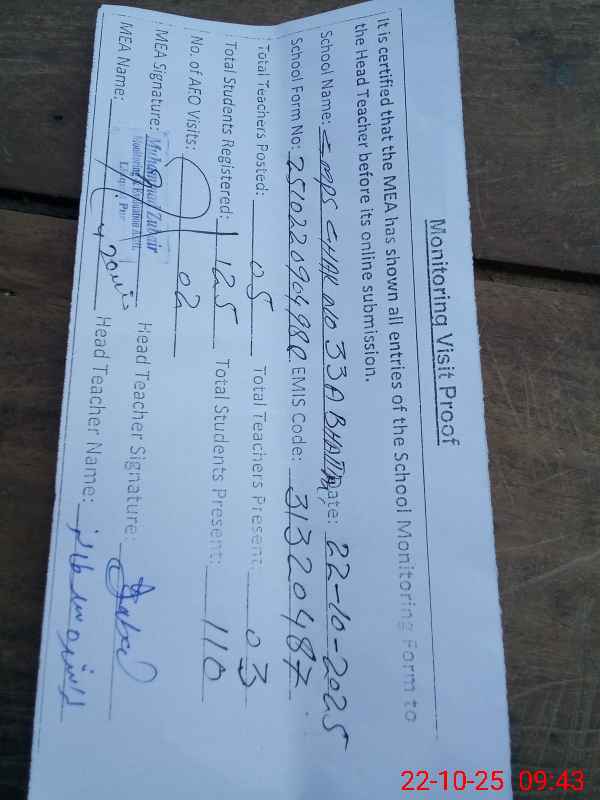 Monitoring Visit Proof
It is certified that the MEA has shown all entries of the School Monitoring Form to
the Head Teacher before its online submission.
School Name: GMPS CHAK NO 33A BHATTA Date: 22-10-2025
School Form No: 2510220904980 EMIS Code: 31320487
Total Teachers Posted: 05 Total Teachers Present: 03
Total Students Registered: 125 Total Students Present: 110
No. of AFO Visits: 02
MEA Signature: Muhammad Zubair Head Teacher Signature:
Monitoring & Evaluation Assistant
MEA Name: Head Teacher Name:
22-10-25 09:43